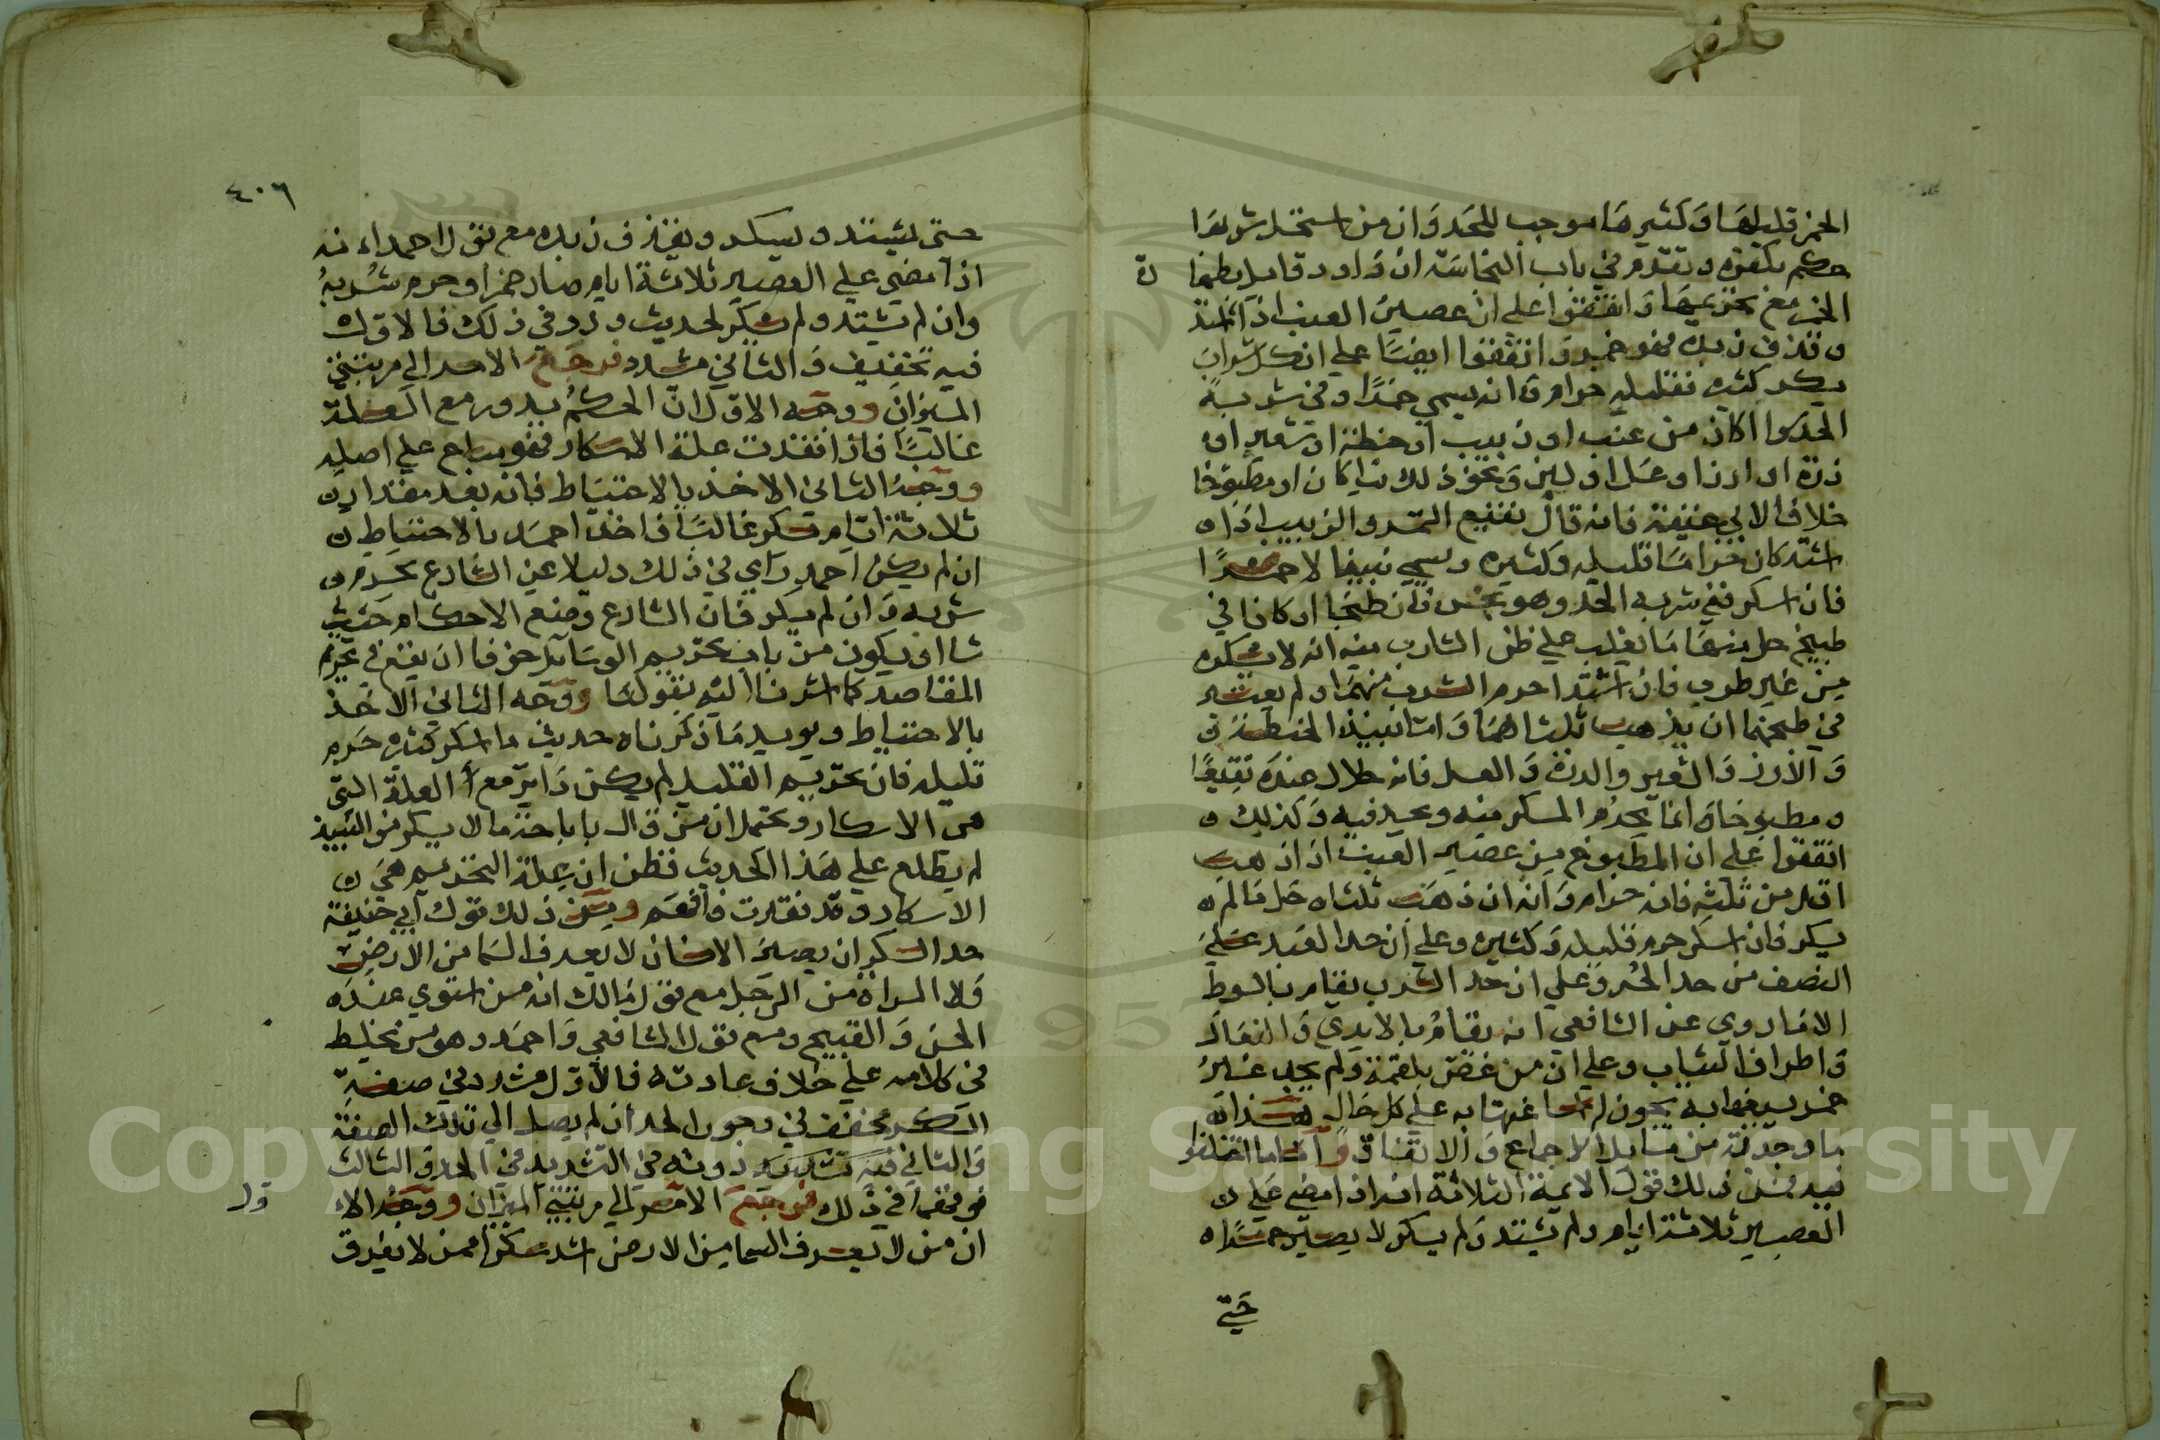 الخمر قليلها وكثيرها موجب للحد وان من استحل شربها
حكم بكفره وتقدم في باب النجاسة ان داود قايل بطهارة
الخمر مع تحريمها واتفقوا على ان عصير العنب اذا اشتد
وقذف زبده فهو خمر واتفقوا ايضا على ان كل شراب
يسكر كثيره فقليله حرام وانه يسمى خمرا وفي شربه
الحد سوا اكان من عنب او زبيب او حنطة او شعير او
ذرة او ارز او عسل او لبن ونحو ذلك نيا كان او مطبوخا
خلافا لابي حنيفة فانه قال نقيع التمر والزبيب اذا
اشتد كان حراما قليله وكثيره ويسمى نبيذا لا خمرا
فان اسكر ففي شربه الحد وهو نجس فان طبخا او كانا في
طبيخ حل منهما ما يغلب على ظن الشارب منه انه لا يسكره
من غير طرب فان اشتدا حرم الشرب منهما ولم يعتبر
في طبخهما ان يذهب ثلثاهما واما نبيذ الحنطة
والارز والشعير والذرة والعسل فانه حلال عنده نقيعا
ومطبوخا وانما يحرم المسكر منه ويحد فيه وكذلك
اتفقوا على ان المطبوخ من عصير العنب اذا ذهب
اقل من ثلثه فانه حرام وانه ان ذهب ثلثاه حل ما لم
يسكر فان اسكر حرم قليله وكثيره وعلى ان حد العبد على
النصف من حد الحر وعلى ان حد الشرب يقام بالسوط
الا ما روي عن الشافعي انه يقام بالايدي والنعال
واطراف الثياب وعلى ان من غص بلقمة ولم يجد غير
خمر يسيغها به يجوز له اساغتها به على كل حال هذا
ما وجدته من مسايل الاجماع والاتفاق واما ما اختلفوا
فيه فمن ذلك قول الايمة الثلاثة انه اذا مضى على
العصير ثلاثة ايام ولم يشتد ولم يسكر لا يصير خمرا
حتى
٤٠٦
حتى يشتد ويسكر ويقذف زبده مع قول احمد انه
اذا مضى على العصير ثلاثة ايام صار خمرا وحرم شربه
وان لم يشتد ولم يسكر لحديث ورد في ذلك فالاول
فيه تخفيف والثاني مشدد فرجع الامر الى مرتبتي
الميزان ووجه الاول ان الحكم يدور مع العلة
غالبا فاذا فقدت علة الاسكار فهو باج على اصله
ووجه الثاني الاخذ بالاحتياط فانه بعد مقدار
ثلاثة ايام يسكر غالبا فاخذ احمد بالاحتياط
ان لم يكن احمد راى في ذلك دليلا عن الشارع بتحريم
شربه وان لم يسكر فان الشارع وضع الاحكام حيث
شا او يكون من باب تحريم الوسايل خوفا ان يقع في تحريم
المقاصد كما اشرنا اليه بقولنا ووجه الثاني الاخذ
بالاحتياط ويويد ما ذكرناه حديث ما اسكر كثيره حرم
قليله فان تحريم القليل لم يكن دايرا مع العلة التي
هي الاسكار ويحتمل ان من قال باباحة ما لا يسكر من النبيذ
لم يطلع على هذا الحديث فظن ان علة التحريم هي
الاسكار وقد فقدت فافهم ومن ذلك قول ابي حنيفة
حد السكر ان يصير الانسان لا يعرف السما من الارض
ولا المراة من الرجل مع قول مالك انه من استوى عنده
الحسن والقبيح ومع قول الشافعي واحمد هو من يخلط
في كلامه على خلاف عادته فالاول مشدد في صفة
السكر مخفف في وجوب الحد ان لم يصل الى تلك الصفة
والثاني فيه تشديد دونه في التشديد في الحد والثالث
هو مخفف في ذلك فرجع الامر الى مرتبتي الميزان ووجه الا
ول
ان من لا يعرف السما من الارض اشد سكرا ممن لا يفرق